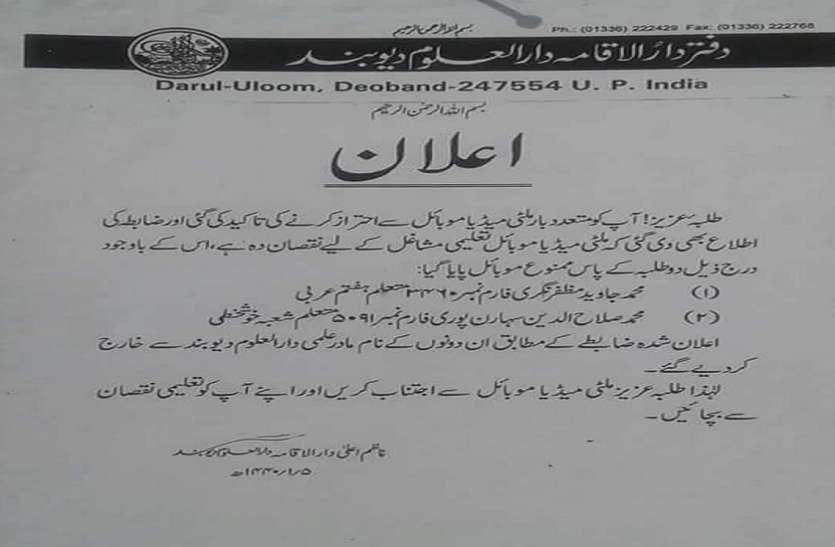 بسم اللہ الرحمن الرحیم
Ph.: (01336) 222429 Fax: (01336) 222768
دفتر دارُ الاقامہ دار العلوم دیوبند
Darul-Uloom, Deoband-247554 U. P. India
بسم اللہ الرحمٰن الرحیم
اعلان
طلبہ عزیز! آپ کو متعدد بار ملٹی میڈیا موبائل سے احتراز کرنے کی تاکید کی گئی اور ضابطہ کی
اطلاع بھی دی گئی کہ ملٹی میڈیا موبائل تعلیمی مشاغل کے لیے نقصان دہ ہے، اس کے باوجود
درج ذیل دو طلبہ کے پاس ممنوع موبائل پایا گیا:
(۱) محمد جاوید مظفر نگری فارم نمبر ۳۴۶۰ متعلم ہفتم عربی
(۲) محمد صلاح الدین سہارن پوری فارم نمبر ۵۰۹۱ متعلم شعبہ خوشخطی
اعلان شدہ ضابطے کے مطابق ان دونوں کے نام مادر علمی دار العلوم دیوبند سے خارج
کر دیے گئے۔
لہٰذا طلبہ عزیز ملٹی میڈیا موبائل سے اجتناب کریں اور اپنے آپ کو تعلیمی نقصان
سے بچائیں۔
ناظم اعلیٰ دار الاقامہ دار العلوم دیوبند
۱۴۴۰/۱/۵ھ